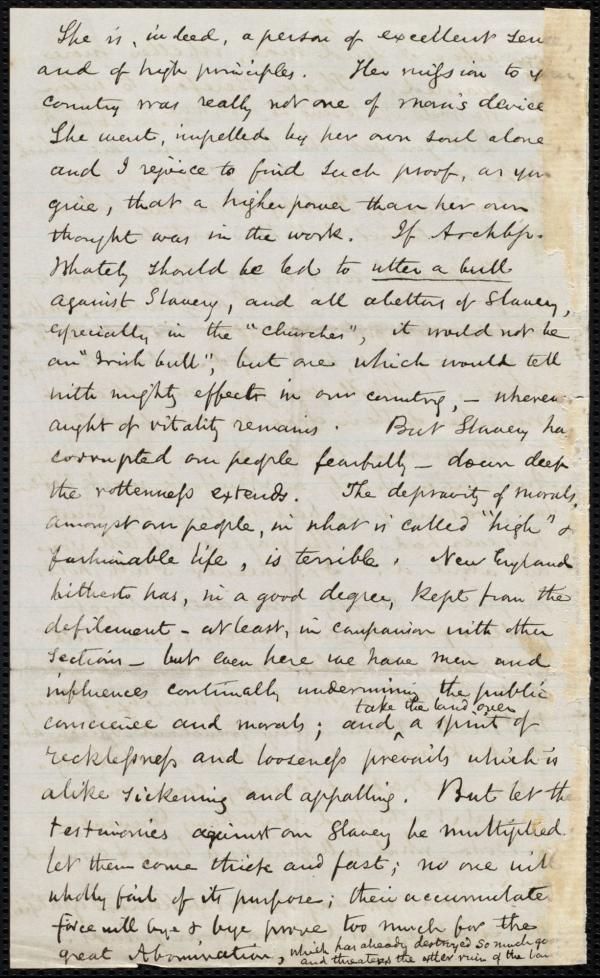 She is, indeed, a person of excellent sen
and of high principles. Her mission to y
country was really not one of man's device
She went, impelled by her own soul alone
and I rejoice to find such proof, as you
give, that a higher power than her own
thought was in the work. If Archbp.
Whately should be led to utter a bull
against Slavery, and all abettors of Slavery,
especially in the "churches", it would not be
an "Irish bull", but one which would tell
with mighty effect in our country, – where
aught of vitality remains. But Slavery ha
corrupted our people fearfully – down deep
the rottenness extends. The depravity of morals,
amongst our people, in what is called "high" &
fashionable life, is terrible. New England
hitherto has, in a good degree, kept from the
defilement – at least, in comparison with other
sections – but even here we have men and
influences continually undermining the public
take the land over
conscience and morals; and ^ a spirit of
recklessness and looseness prevails which is
alike sickening and appalling. But let the
testimonies against our Slavery be multiplied
let them come thick and fast; no one will
wholly fail of its purpose; their accumulate
force will bye & bye prove too much for the
great Abomination, which has already destroyed so much go
and threatens the utter ruin of the lan